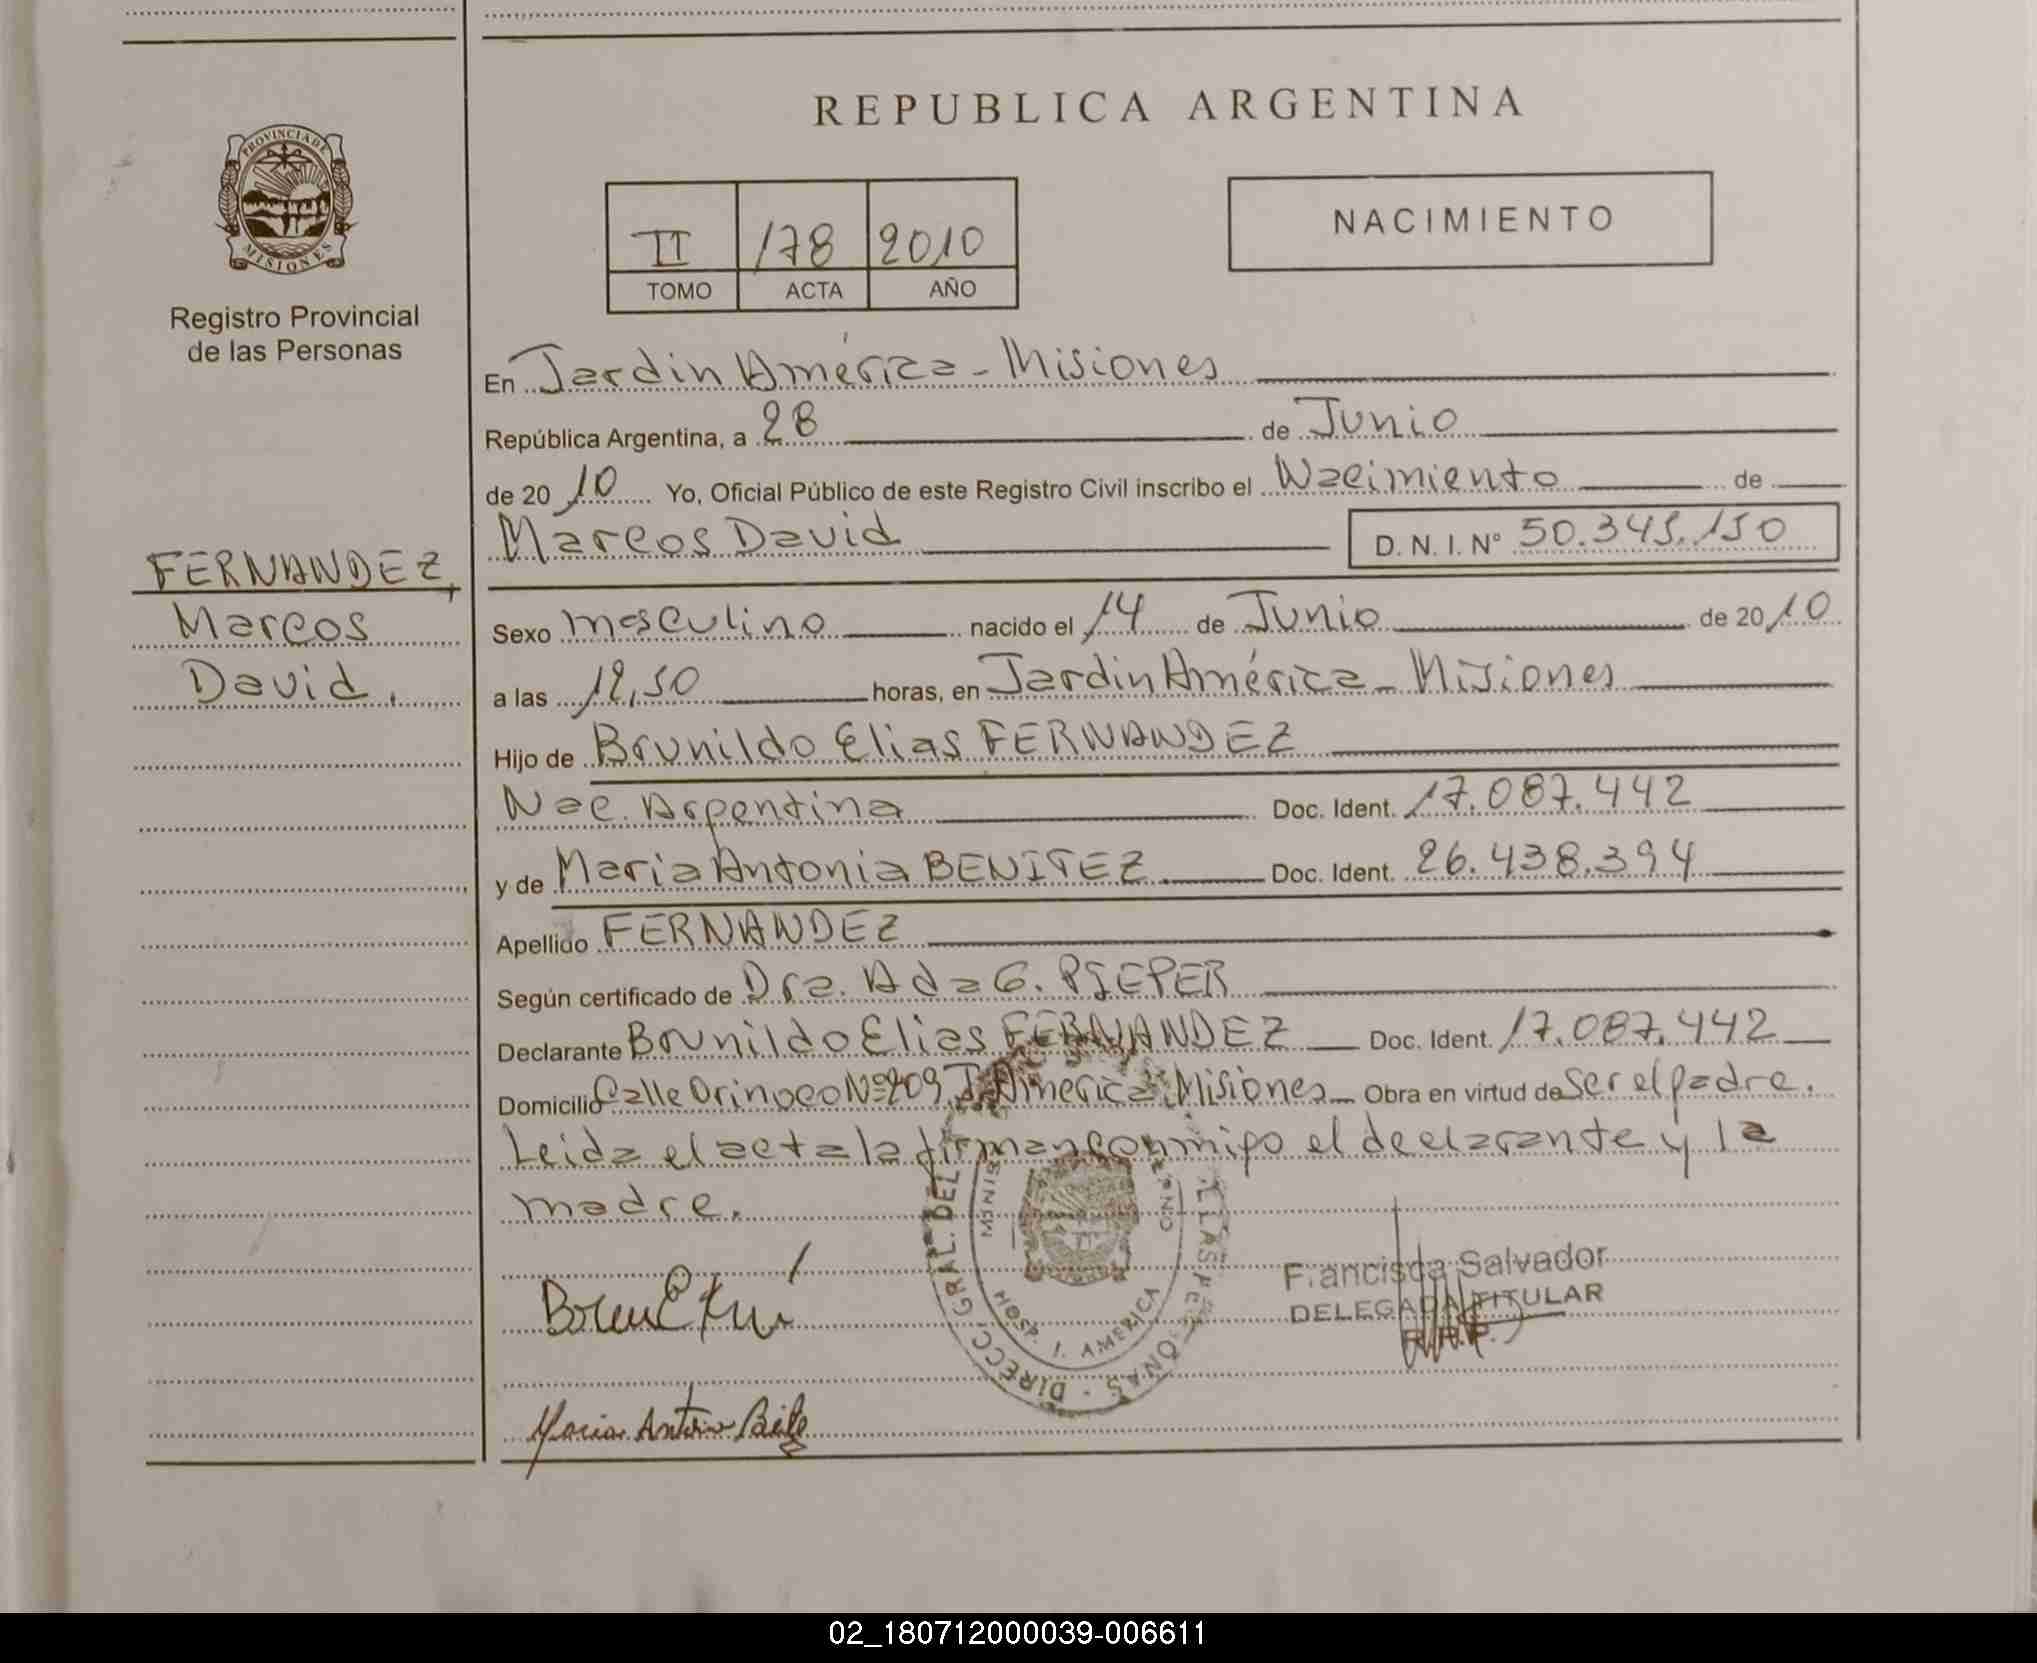 REPUBLICA ARGENTINA
PROVINCIA DE
MISIONES
Registro Provincial
de las Personas
II 178 2010
TOMO ACTA AÑO
NACIMIENTO
En Jardin América - Misiones
República Argentina, a 28 de Junio
de 2010 Yo, Oficial Público de este Registro Civil inscribo el Nacimiento de
Marcos David D. N. I. N° 50.345.150
FERNANDEZ,
Marcos
David.
Sexo masculino nacido el 14 de Junio de 2010
a las 12,50 horas, en Jardin América - Misiones
Hijo de Brunildo Elias FERNANDEZ
Nac. Argentina Doc. Ident. 17.087.442
y de Maria Antonia BENITEZ Doc. Ident. 26.438.394
Apellido FERNANDEZ
Según certificado de Dra. Ada G. PIEPER
Declarante Brunildo Elias FERNANDEZ Doc. Ident. 17.087.442
Domicilio Calle Orinoco Nº 209 J. America - Misiones Obra en virtud de ser el padre.
Leida el acta la firman conmigo el declarante y la
madre.
DIRECC. GRAL. DEL
HOSP. J. AMERICA
Francisca Salvador
DELEGADA TITULAR
R.R.P.
Maria Antonia
02_180712000039-006611